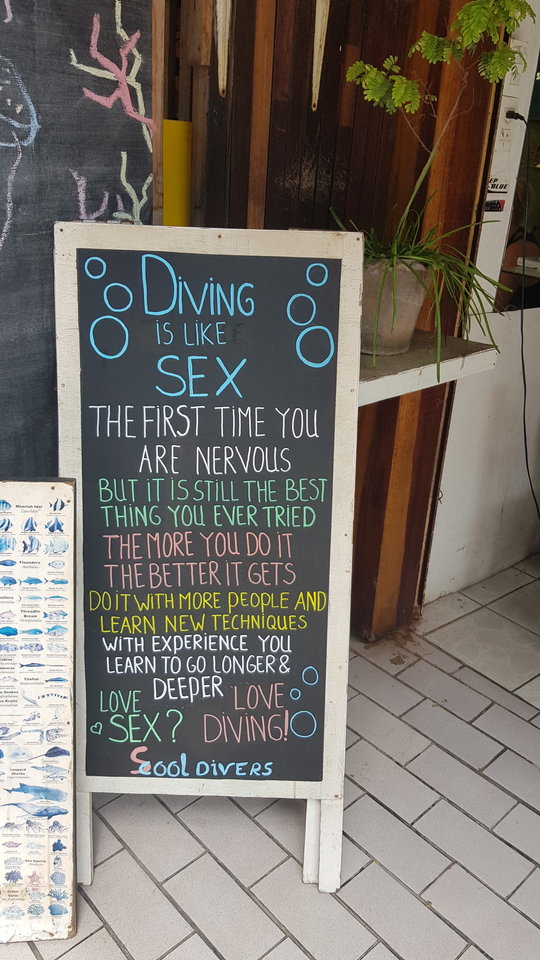 DIVING
IS LIKE
SEX
THE FIRST TIME YOU
ARE NERVOUS
BUT IT IS STILL THE BEST
THING YOU EVER TRIED
THE MORE YOU DO IT
THE BETTER IT GETS
DO IT WITH MORE PEOPLE AND
LEARN NEW TECHNIQUES
WITH EXPERIENCE YOU
LEARN TO GO LONGER &
DEEPER
LOVE SEX?
LOVE DIVING!
SCOOL DIVERS
Moorish Idol
Flounders
Threadfin
Bream